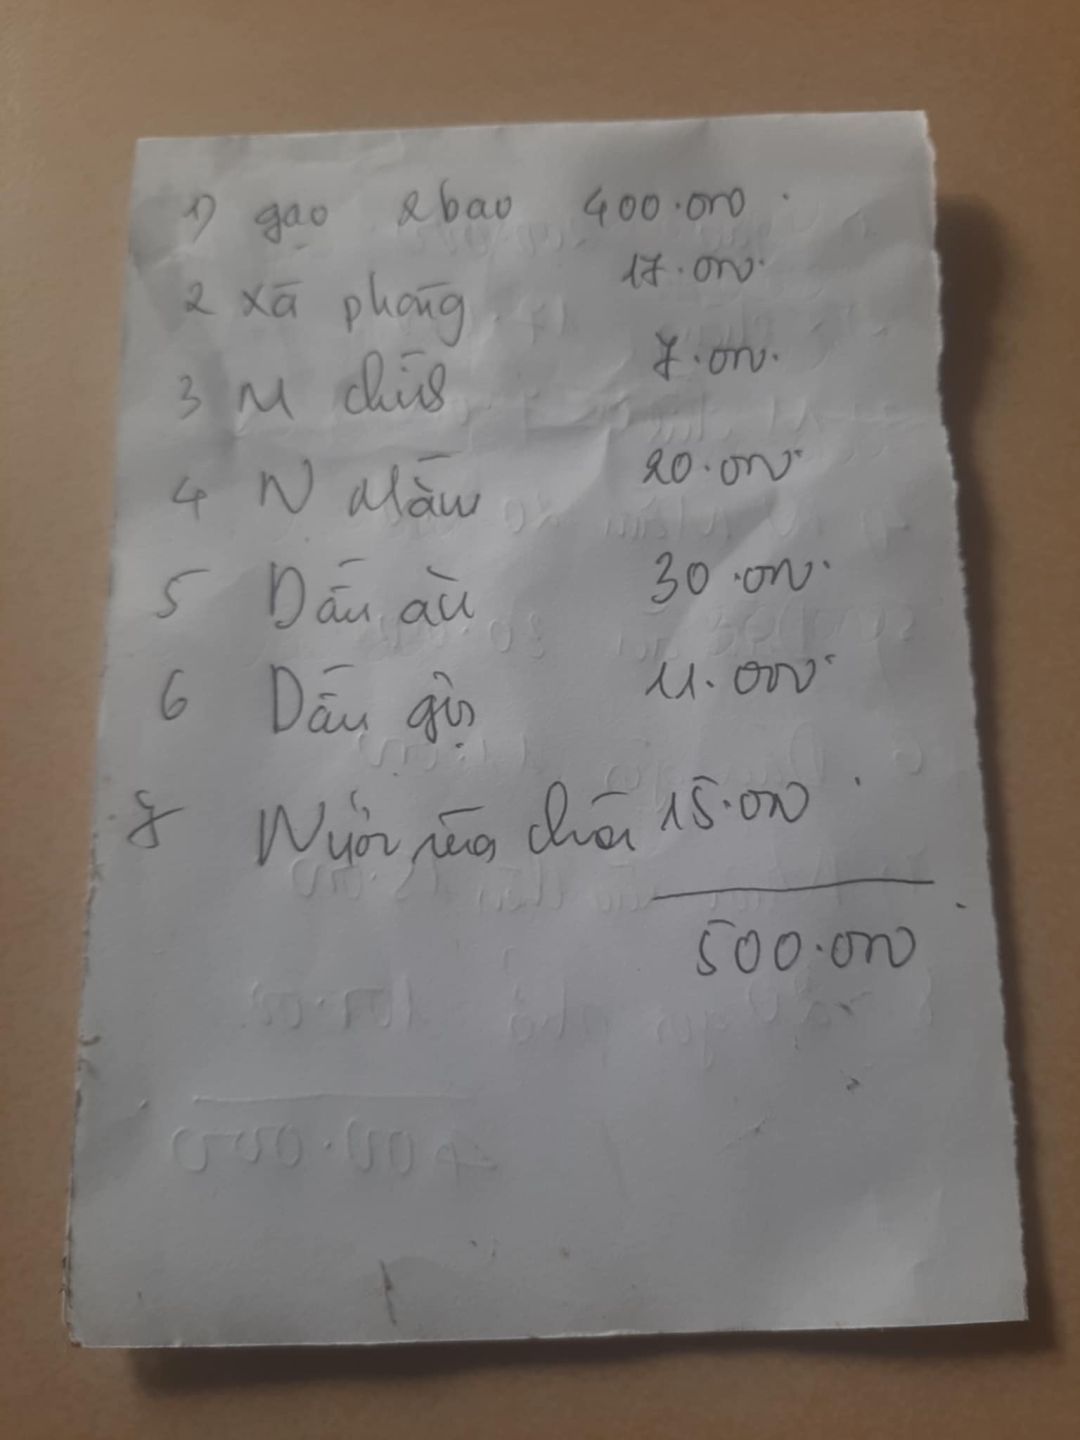 1) gạo 2 bao 400.000
2 xã phòng 17.000
3 M chũs 7.000
4 N Mằm 20.000
5 Dầu ăn 30.000
6 Dầu gội 11.000
7 Nước rửa chén 15.000
500.000